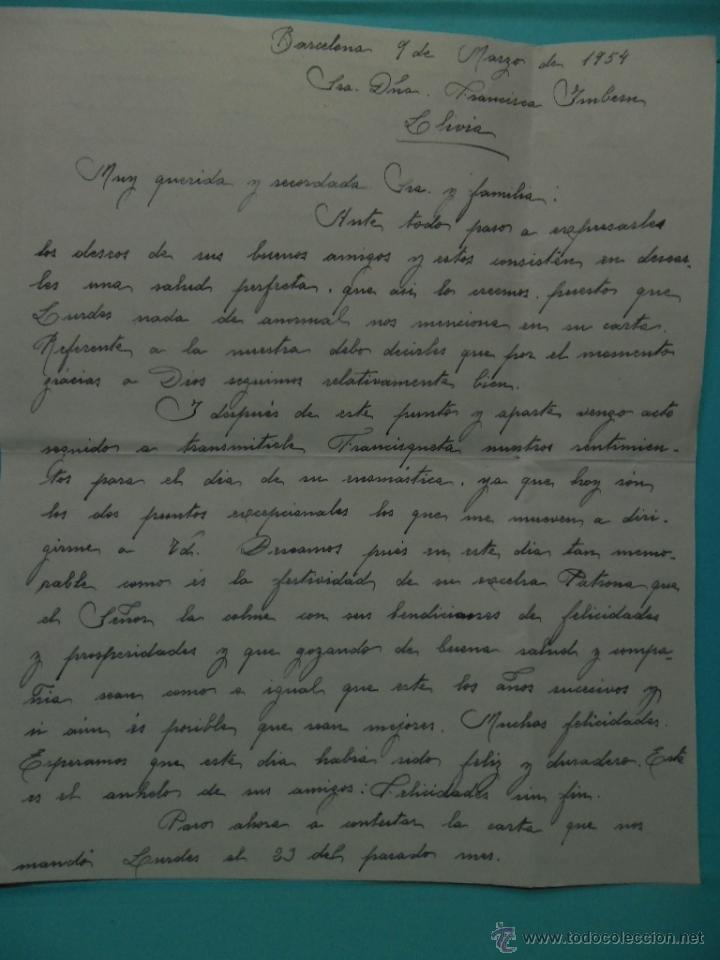 Barcelona 9 de Marzo de 1954
Sra. Dña. Francisca Imbern
Llivia
Muy querida y recordada Sra. y familia:
Ante todo paso a expresarles
los deseos de sus buenos amigos y estos consistén en desear-
les una salud perfecta, que asi lo creemos, puestos que
Lurdes nada de anormal nos menciona en su carta.
Referente a la nuestra debo decirles que por el momento
grácias a Dios seguimos relativamente bien.
I después de este punto y aparte vengo acto
seguido a transmitirle Francisqueta nuestros sentimien-
tos para el dia de su onomástica, ya que hoy són
los dos puntos excepcionales los que me mueven a diri-
girme a Vd. Deseamos pués en este dia tan memo-
rable como és la festividad de su excelsa Patrona que
el Señor la colme con sus bendiciones de felicidades
y prosperidades y que gozando de buena salud y compa-
ñia sean como a igual que este los años sucesivos y
si aún és posible que sean mejores. Muchas felicidades.
Esperamos que este dia habrá sido feliz y duradero. Este
es el anhelo de sus amigos: Felicidades sin fin.
Paso ahora a contestar la carta que nos
mandó Lurdes el 23 del pasado mes.
www.todocoleccion.net